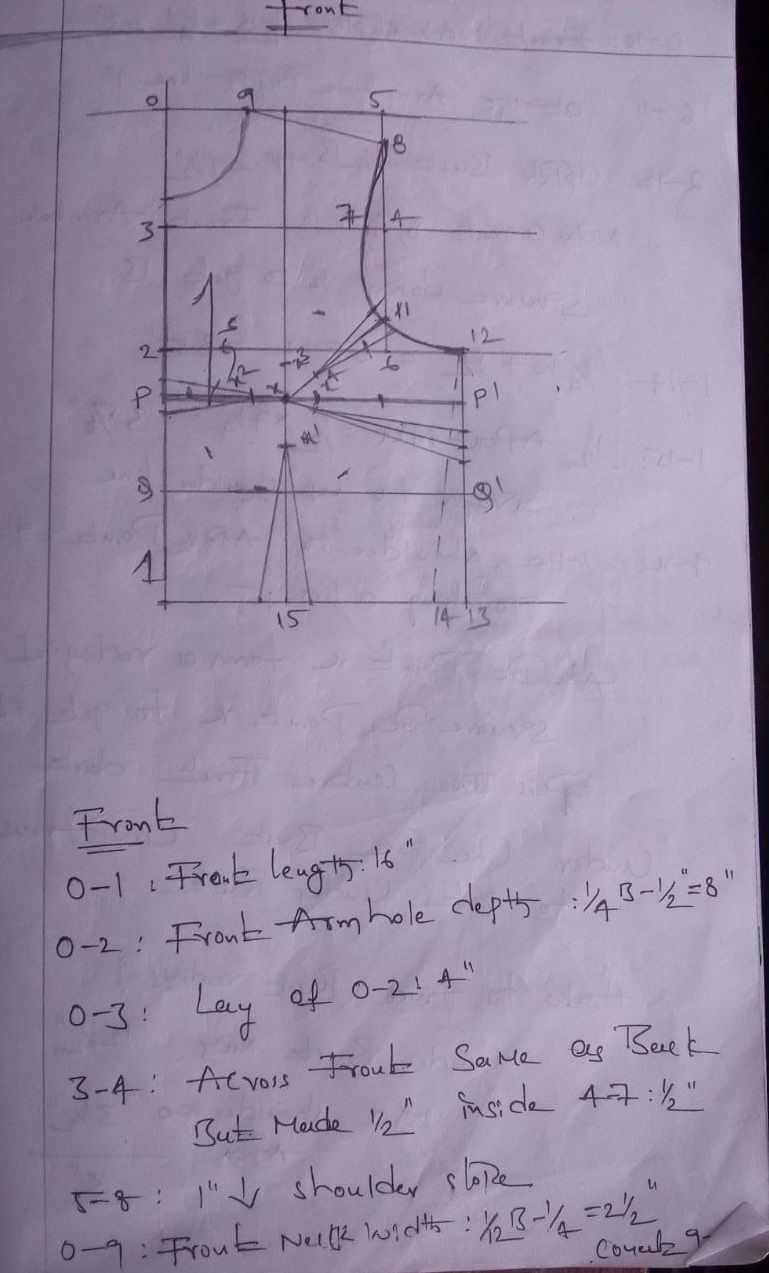 Front
0 9 5
8
3 7 4
11
2 6 12
P x P'
Q Q'
1
15 14 13
Front
0-1 : Front length: 16"
0-2 : Front Armhole depth : 1/4 B - 1/2" = 8"
0-3 : Lay of 0-2: 4"
3-4 : Across Front Same as Back
But Made 1/2" inside 4-7: 1/2"
5-8 : 1" ↓ shoulder slope
0-9 : Front Neck Width : 1/12 B - 1/4 = 2 1/2"
9-